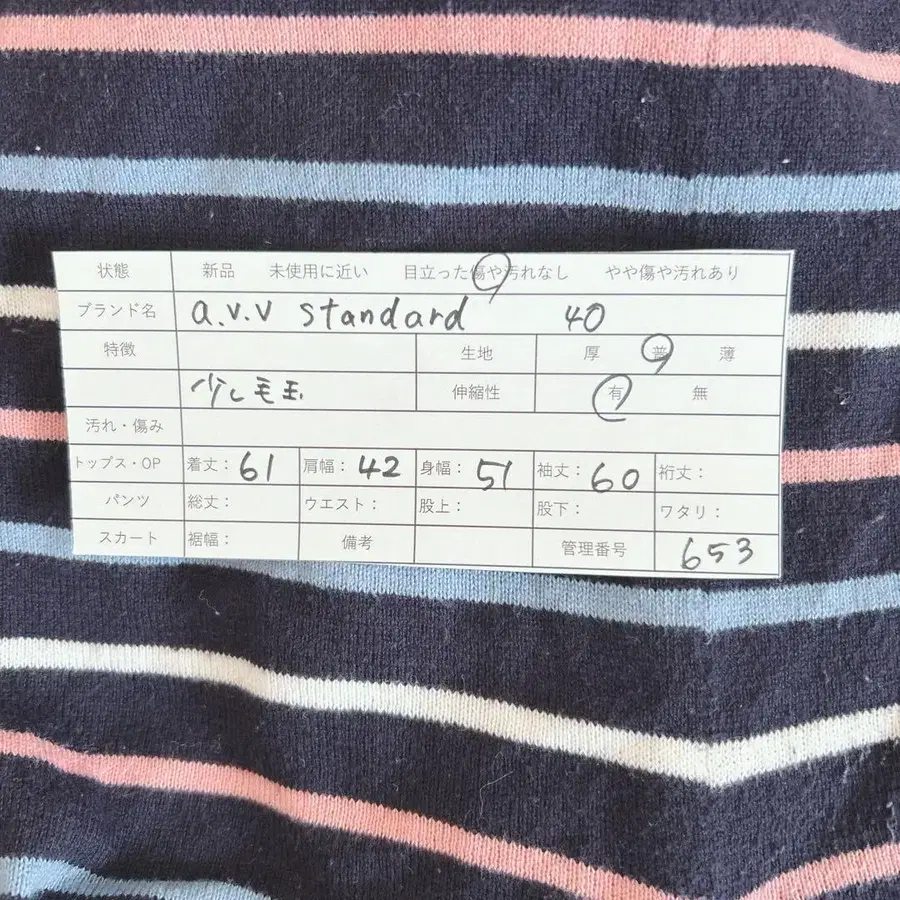 状態 新品 未使用に近い 目立った傷や汚れなし やや傷や汚れあり
ブランド名 a.v.v standard 40
特徴 生地 厚 普 薄
少し毛玉 伸縮性 有 無
汚れ・傷み
トップス・OP 着丈: 61 肩幅: 42 身幅: 51 袖丈: 60 裄丈:
パンツ 総丈: ウエスト: 股上: 股下: ワタリ:
スカート 裾幅: 備考 管理番号 653